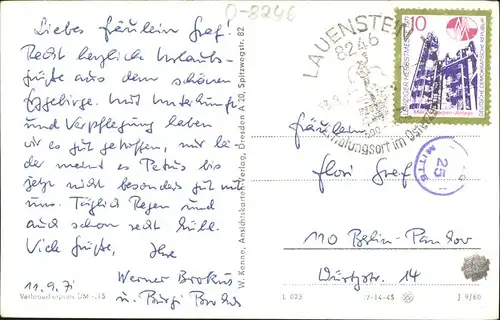 O-8246
Liebes Fräulein Gref!
Recht herzliche Urlaubs-
grüße aus dem schönen
Erzgebirge. Mit Unterkunft
und Verpflegung haben
wir es gut getroffen, nur lei-
der meint es Petrus bis
jetzt nicht besonders gut mit
uns. Täglich Regen und
auch schon recht kühl.
Viele Grüße, Ihre
11.9.71 Werner
u. Birgi
Verbraucherpreis DM -,15
W. Kenne, Ansichtskarten-Verlag, Dresden A 20, Spitzwegstr. 82
LAUENSTEIN
8246
Erholungsort im Osterz
10
LEIPZIGER HERBSTMESSE 1971
DEUTSCHE DEMOKRATISCHE REPUBLIK
25
MITTE
Fräulein
Flori Gref
110 Berlin-Pankow
14
L 023 J 9/60